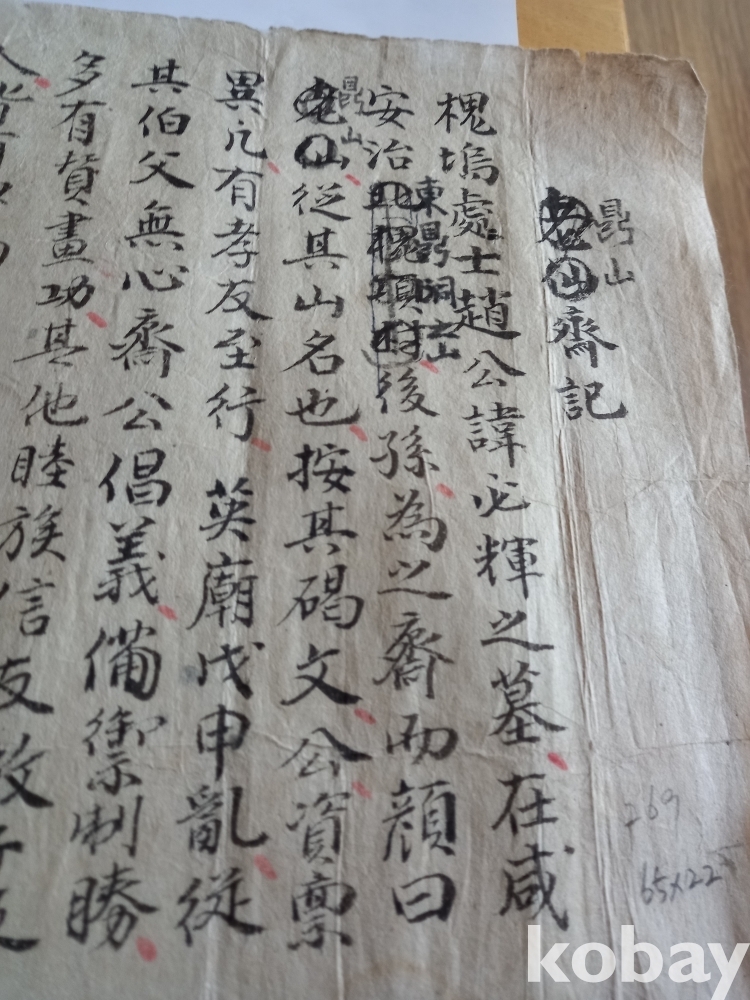 昻山
齋記
槐塢處士趙公諱必輝之墓在咸
安治東昻洞之山後孫為之齋而顔曰
昻山從其山名也按其碣文公資稟
異凡有孝友至行 英廟戊申亂從
其伯父無心齋公倡義備禦制勝
多有贊畫功其他睦族信友
269
65×22
kobay